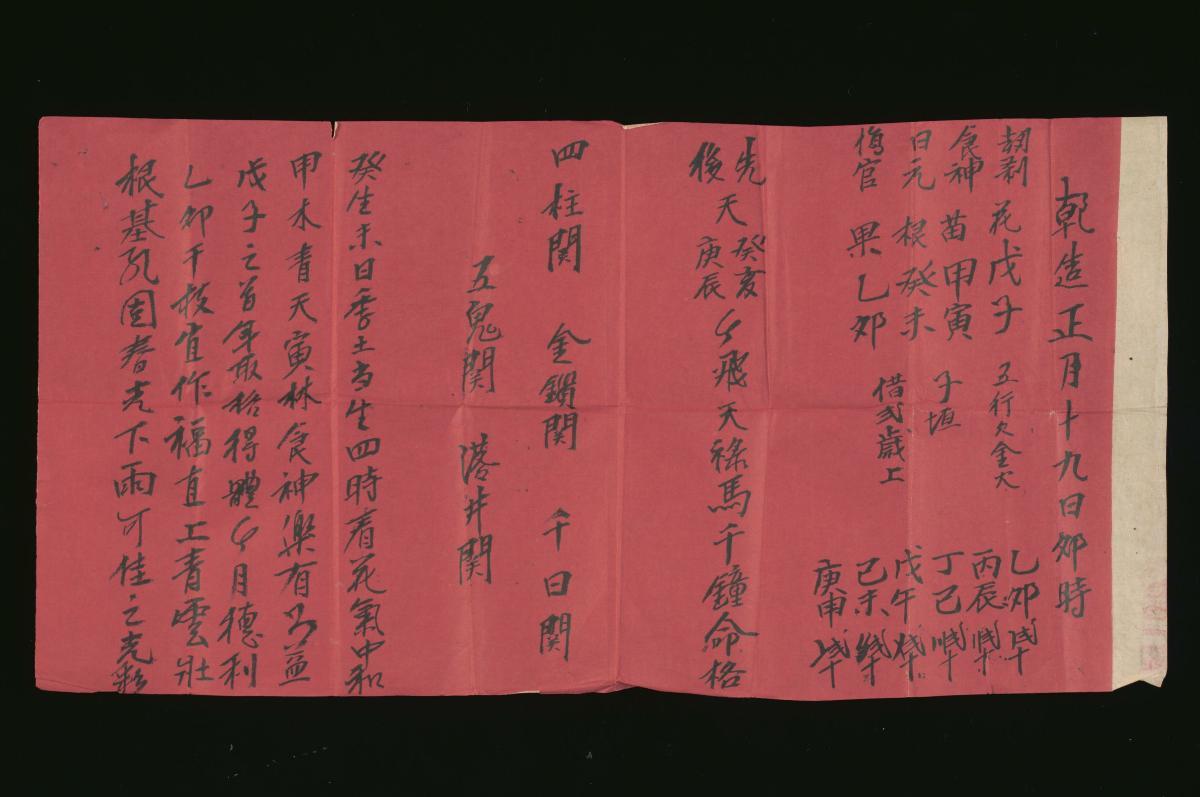 乾造正月十九日卯時
劫剎 花 戊子 五行欠金火
食神 苗 甲寅 子垣
日元 根 癸未
傷官 果 乙卯 借弍歲上
乙卯
丙辰
丁巳
戊午
己未
庚申
先天癸亥
後天庚辰
飛天祿馬千鐘命格
四柱関 金鎖関 千日関
五鬼関 湯井関
癸生未日季土当生四時看花氣中和
甲木青天寅林食神樂有為益
戊子之首年取格得體月德利
乙卯干枝值作福直上青雲壯
根基孔固春光下雨可佳之光彩